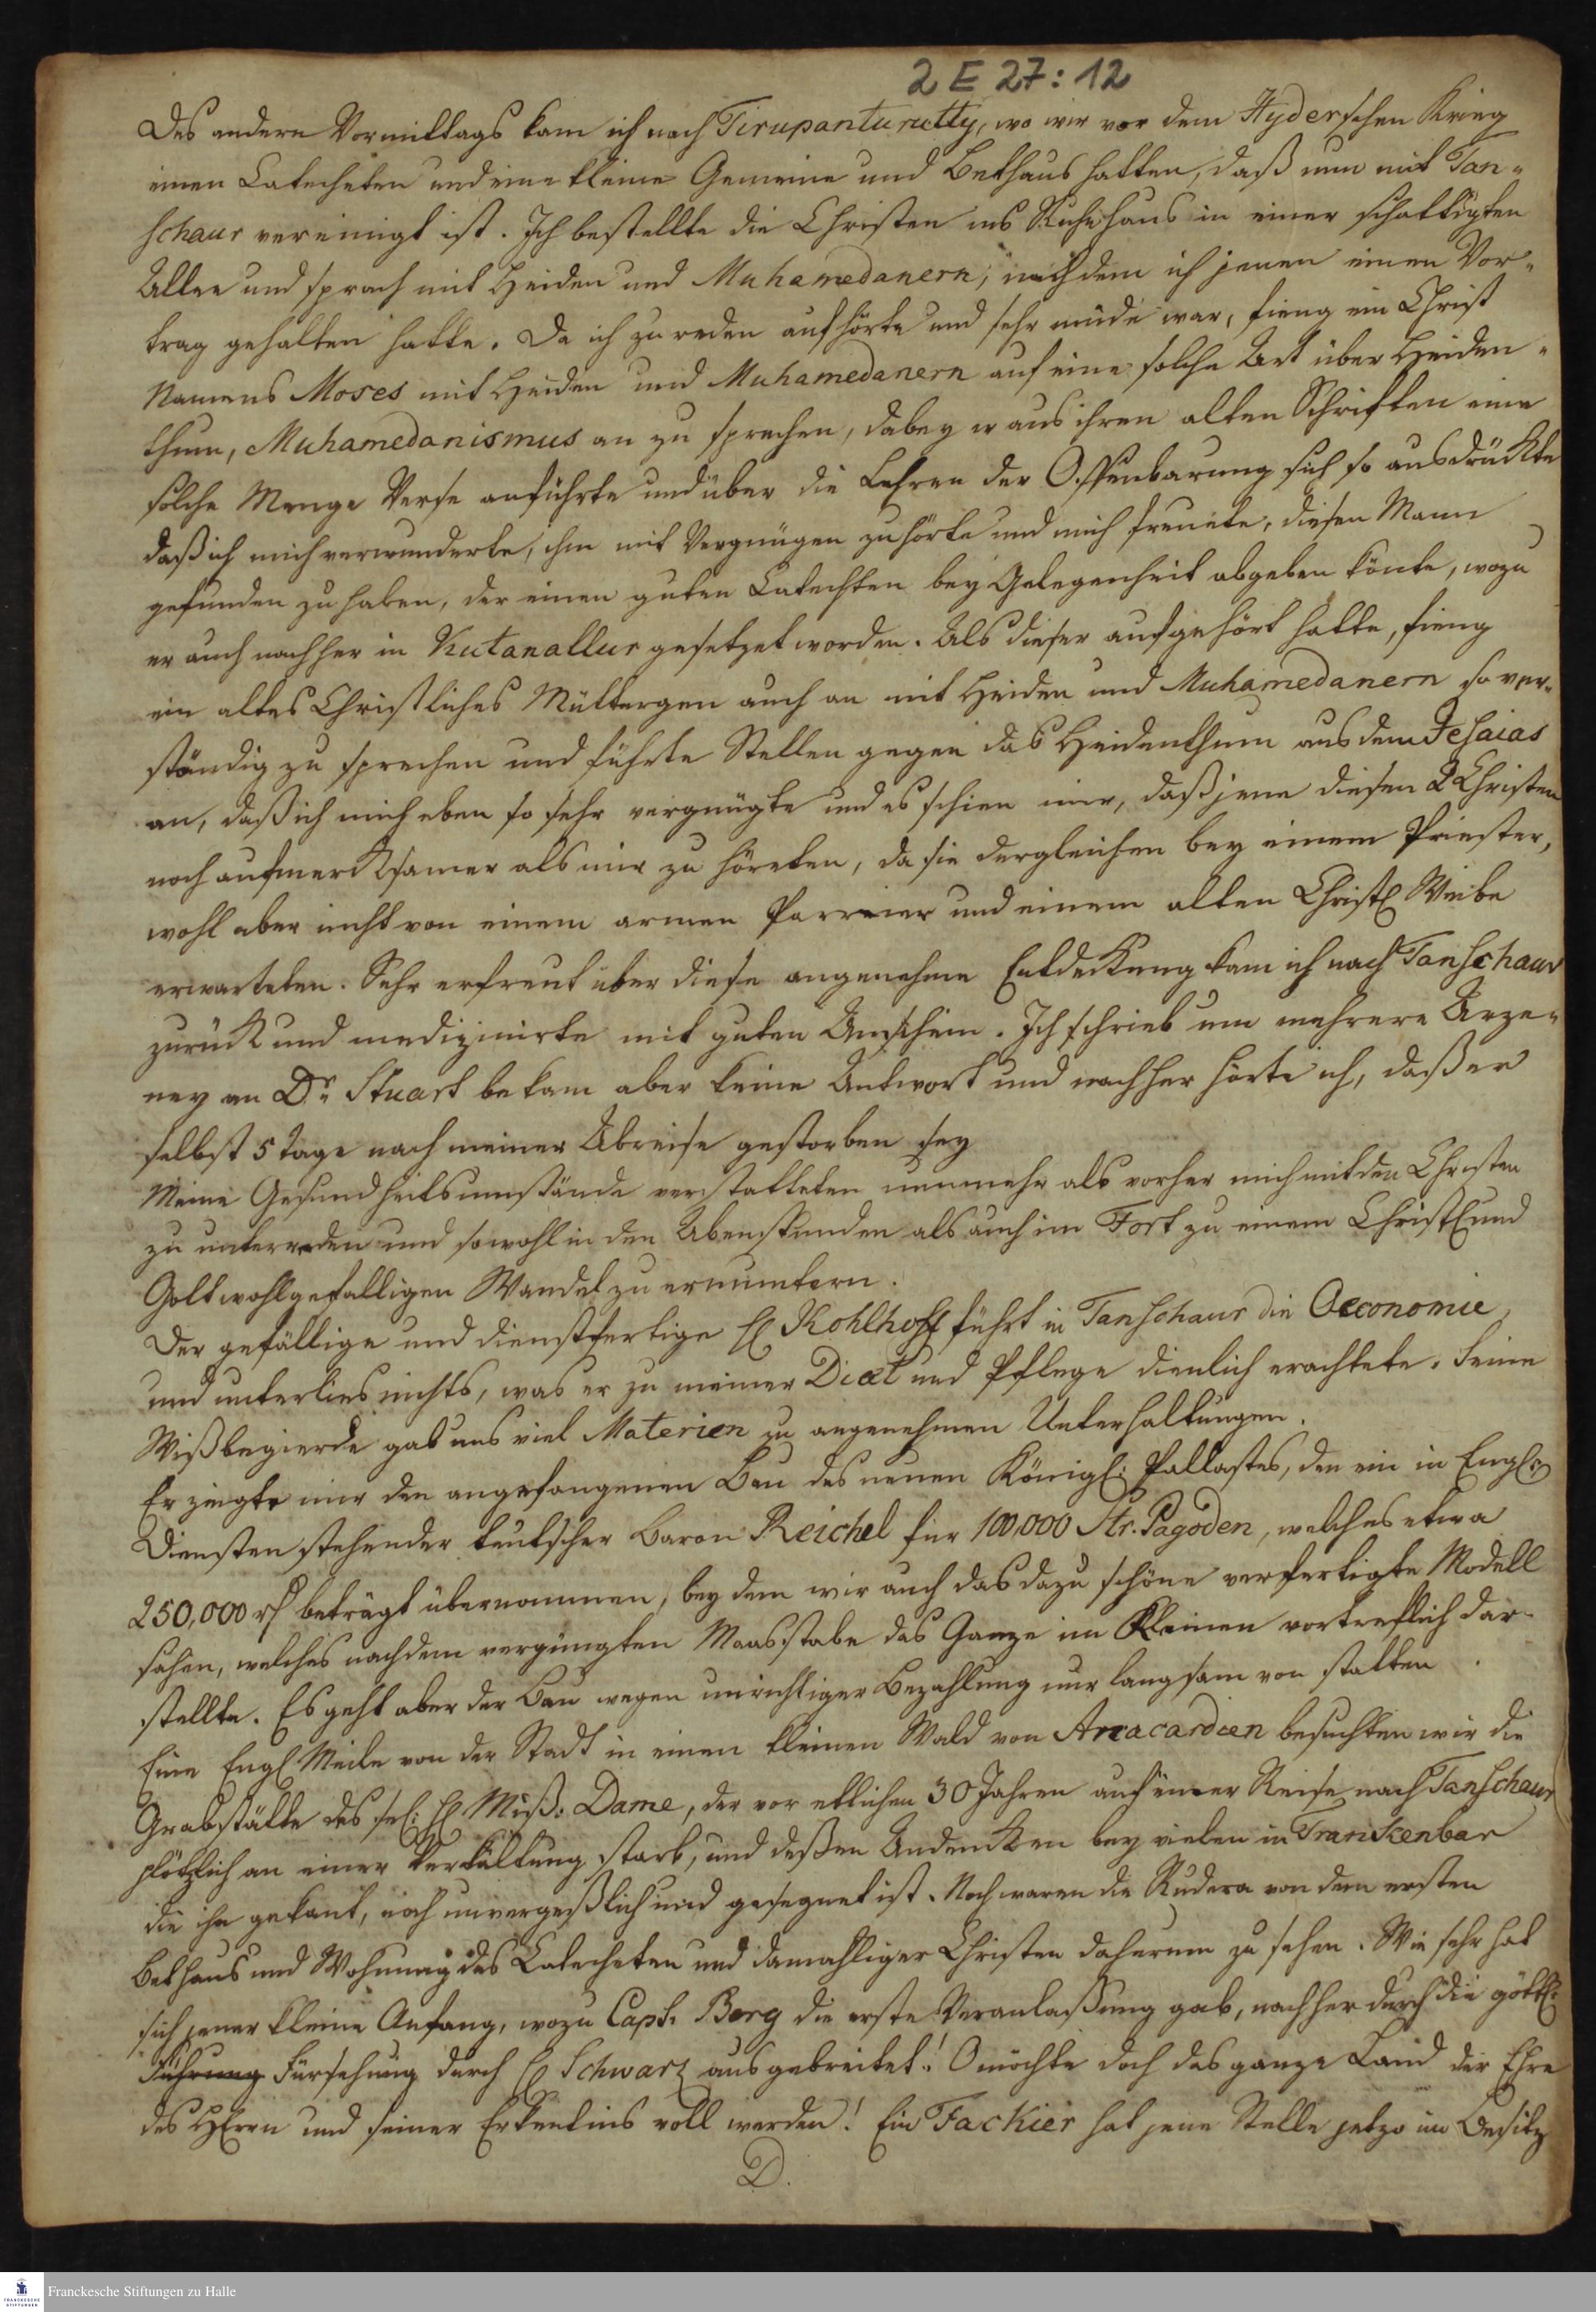 2 E 27:12
Des andern Vormittags kam ich nach Tirupanturutty, wo wir vor dem Hyderschen Krieg
einen Catecheten und eine kleine Gemeine und Bethaus hatten, daß nun mit Tan-
schaur vereinigt ist. Ich bestellte die Christen ins Ruhehaus in einer schattigten
Allee und sprach mit Heiden und Muhamedanern, nachdem ich jenen einen Vor-
trag gehalten hatte. Da ich zu reden aufhörte und sehr müde war, fieng ein Christ
Namens Moses mit Heiden und Muhamedanern auf eine solche Art über Heiden-
thum, Muhamedanismus an zu sprechen, dabey er aus ihren alten Schriften eine
solche Menge Verse anführte und über die Lehren der Offenbarung sich so ausdrückte
daß ich mich verwunderte, ihm mit Vergnügen zuhörte und mich freuete, diesen Mann
gefunden zu haben, der einen guten Catecheten bey Gelegenheit abgeben könte, wozu
er auch nachher in Kutanallur gesetzet worden. Als dieser aufgehört hatte, fieng
ein altes Christliches Müttergen auch an mit Heiden und Muhamedanern so ver-
ständig zu sprechen und führte Stellen gegen das Heidenthum aus dem Jesaias
an, daß ich mich eben so sehr vergnügte und es schien mir, daß jene diesen 2 Christen
noch aufmerksamer als mir zu höreten, da sie dergleichen bey einem Priester,
wohl aber nicht von einem armen Parreier und einem alten Christl Weibe
erwarteten. Sehr erfreut über diese angenehme Entdeckung kam ich nach Tanschaur
zurück und medizinirte mit guten Anschein. Ich schrieb um mehrere Arze-
ney an Dr Stuart bekam aber keine Antwort und nachher hörte ich, daß er
selbst 5 Tage nach meiner Abreise gestorben sey
Meine Gesundheitsumstände verstatteten nunmehr als vorher mich mit den Christen
zu unterreden und sowohl in den Abenstunden als auch im Fort zu einem Christl und
Gott wohlgefalligen Wandel zu ermuntern.
Der gefällige und dienstfertige H Kohlhoff führt in Tanschaur die Oeconomie,
und unterlies nichts, was er zu meiner Diæt und Pflege dienlich erachtete. Seine
Wißbegierde gab uns viel Materien zu angenehmen Unterhaltungen.
Er zeigte mir den angefangenen Bau des neuen Königl: Pallastes, den ein in Engl:
Diensten stehender teutscher Baron Reichel für 100,000 Str. Pagoden, welches etwa
250,000 rh beträgt übernommen, bey dem wir auch das dazu schöne verfertigte Modell
sahen, welches nach dem verjüngten Maasstabe das Ganze im Kleinen vortreflich dar-
stellte. Es geht aber der Bau wegen unrichtiger Bezahlung nur langsam von statten.
Eine Engl Meile von der Stadt in einen kleinen Wald von Anacardien besuchten wir die
Grabstätte des sel: H Miß: Dame, der vor etlichen 30 Jahren auf einer Reise nach Tanschaur
plötzlich an einer Verkältung starb, und deßen Andencken bey vielen in Trankenbar
die ihn gekant, noch unvergeßlich und gesegnet ist. Noch waren die Rudera von dem ersten
Bethaus und Wohnung des Catecheten und damahliger Christen daherum zu sehen. Wie sehr hat
sich jener kleine Anfang, wozu Capt. Berg die erste Veranlaßung gab, nachher durch die göttl:
Führung Fürsehung durch H Schwarz ausgebreitet! O möchte doch das ganze Land der Ehre
des HErrn und seiner Erkentnis voll werden! Ein Fackier hat jene Stelle jetzo im Besitz
D.
Franckesche Stiftungen zu Halle